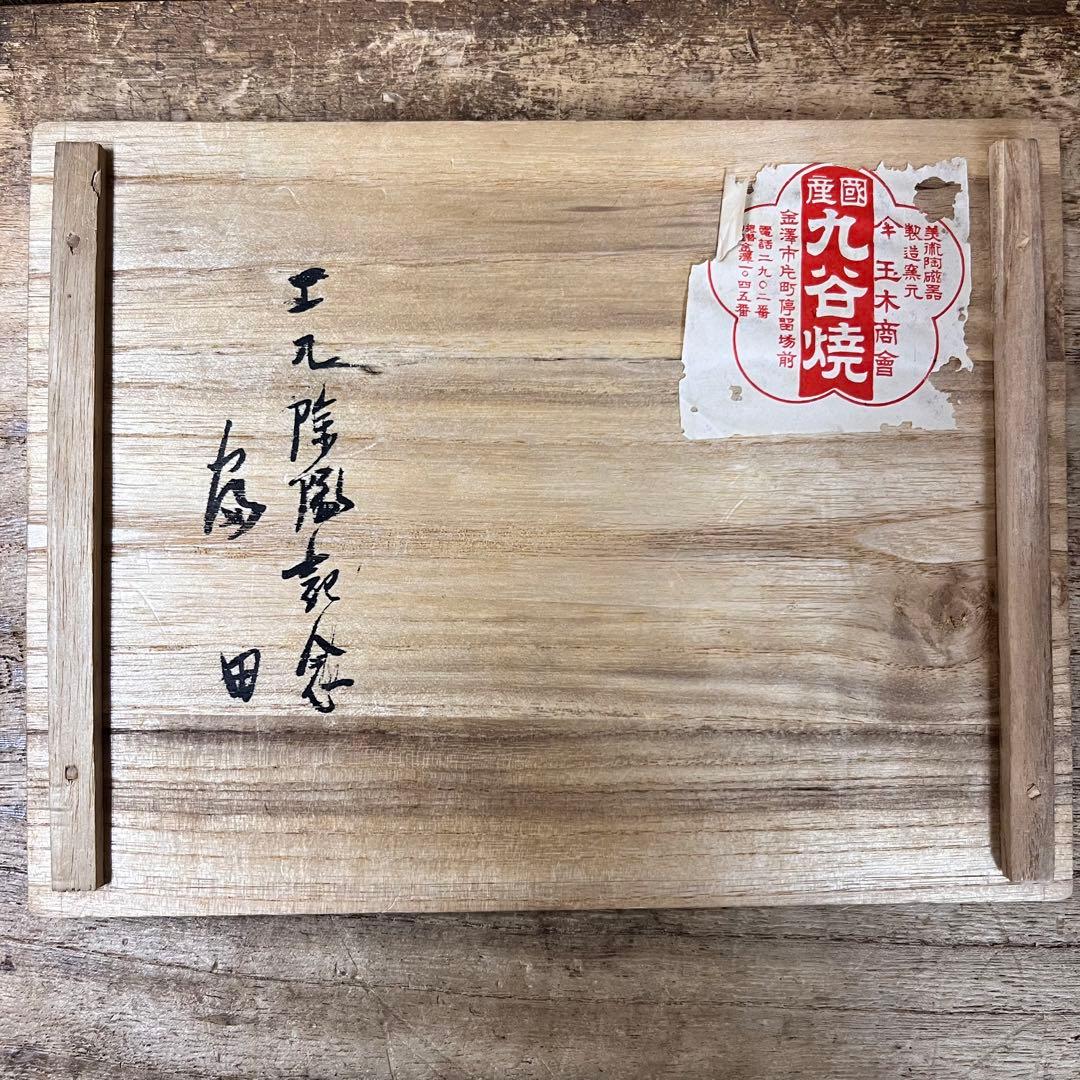 美術陶磁器
製造窯元
玉木商會
國産
九谷燒
金澤市片町停留場前
電話二九〇二番
振替金澤一〇四五番
工九除隊記念
田